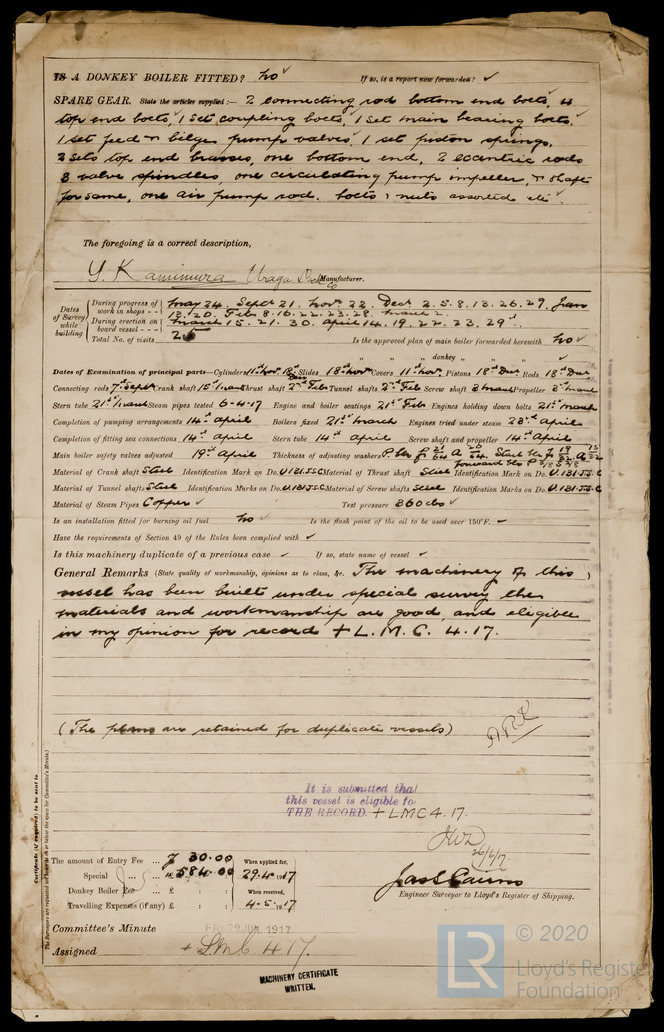 IS A DONKEY BOILER FITTED? no ✓ If so, is a report now forwarded? ✓
SPARE GEAR. State the articles supplied:— 2 connecting rod bottom end bolts, 4
top end bolts, 1 set coupling bolts, 1 set main bearing bolts.
1 set feed & bilge pump valves, 1 set piston springs,
2 sets top end brasses, one bottom end, 2 eccentric rods
3 valve spindles, one circulating pump impeller, & shaft
for same, one air pump rod. bolts & nuts assorted etc
The foregoing is a correct description,
Y. Kamimura Uraga Dock Co Manufacturer.
Dates of Survey while building
During progress of work in shops - - May 24. Sept 21. Nov. 22. Dec. 2. 5. 8. 13. 26. 29. Jan
13. 20. Feb 8. 16. 22. 23. 28. March 2.
During erection on board vessel - - - March 15. 21. 30. April 14. 19. 22. 23. 29
Total No. of visits 25 Is the approved plan of main boiler forwarded herewith no ✓
" " " donkey " " " ✓
Dates of Examination of principal parts—Cylinders 11th Nov. 18th Dec Slides 18th Nov Covers 11th Nov. Pistons 18th Dec Rods 18th Dec
Connecting rods 7th Sept Crank shaft 15th March Thrust shaft 2nd Feb Tunnel shafts 2nd Feb Screw shaft 2 March Propeller 2nd March
Stern tube 21st March Steam pipes tested 6-4-17 Engine and boiler seatings 21st Feb Engines holding down bolts 21st March
Completion of pumping arrangements 14th April Boilers fixed 21st March Engines tried under steam 23rd April
Completion of fitting sea connections 14th April Stern tube 14th April Screw shaft and propeller 14th April
Main boiler safety valves adjusted 19th April Thickness of adjusting washers
Material of Crank shaft Steel Identification Mark on Do. U131JSC Material of Thrust shaft Steel Identification Mark on Do. U.131.J.S.C
Material of Tunnel shafts Steel Identification Marks on Do. U131JSC Material of Screw shafts Steel Identification Marks on Do. U.131.J.S.C
Material of Steam Pipes Copper ✓ Test pressure 360 lbs ✓
Is an installation fitted for burning oil fuel no ✓ Is the flash point of the oil to be used over 150°F. ✓
Have the requirements of Section 49 of the Rules been complied with ✓
Is this machinery duplicate of a previous case ✓ If so, state name of vessel ✓
General Remarks (State quality of workmanship, opinions as to class, &c. The machinery of this
vessel has been built under special survey the
materials and workmanship are good, and eligible
in my opinion for record + L. M. C. 4. 17.
(The plans are retained for duplicate vessels)
It is submitted that
this vessel is eligible for
THE RECORD. + LMC 4. 17.
26/6/17.
Certificate (if required) to be sent to
The amount of Entry Fee ... 30.00 When applied for,
Special ... 584.00 29.4.1917
Donkey Boiler Fee ... £ : : When received,
Travelling Expenses (if any) £ : : 4-5-1917
Jas S Cairns
Engineer Surveyor to Lloyd's Register of Shipping.
Committee's Minute FRI. 29 JUN. 1917
Assigned + LMC 4.17.
MACHINERY CERTIFICATE
WRITTEN.
LR © 2020
Lloyd's Register
Foundation